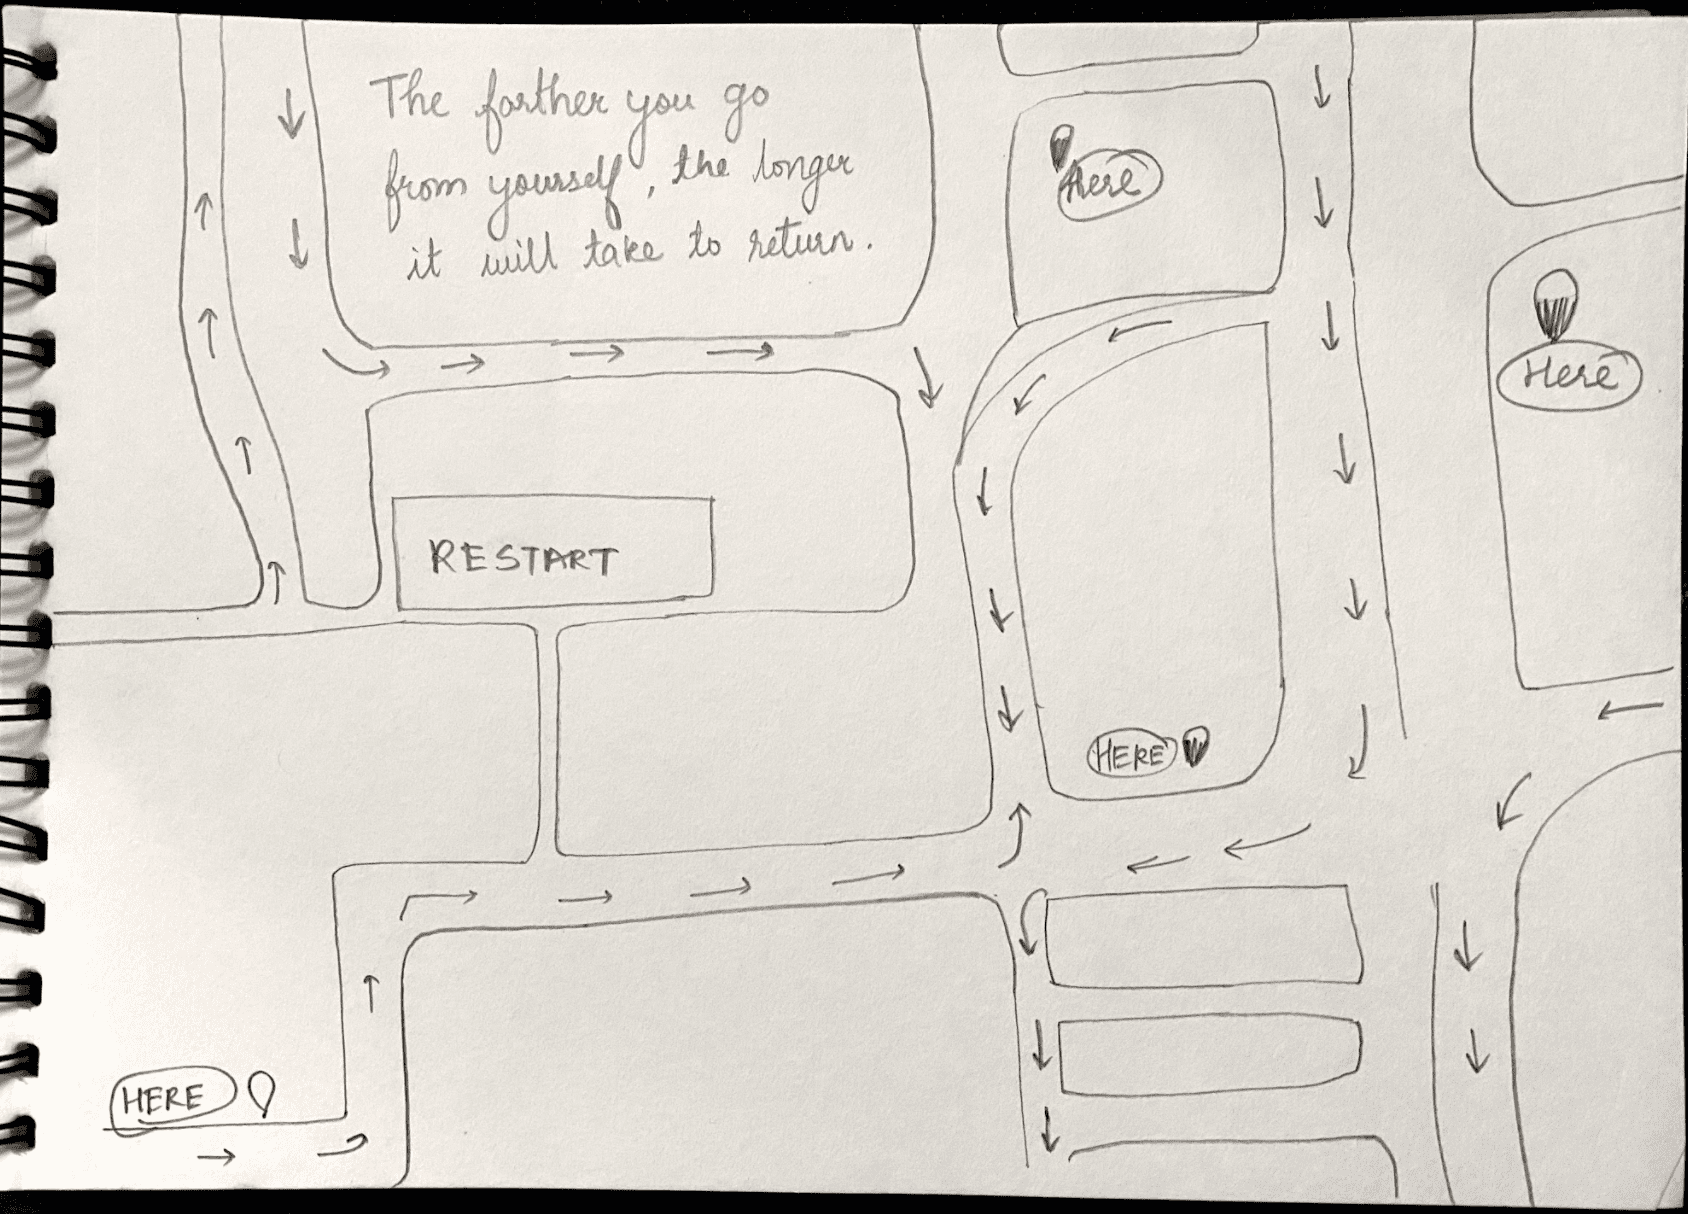 The farther you go
from yourself, the longer
it will take to return.
Here
Here
RESTART
HERE
HERE